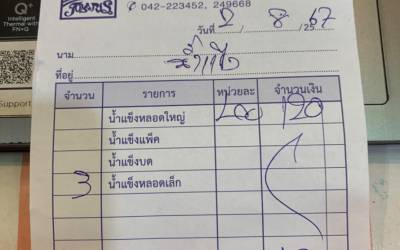 Q+
Intelligent
Thermal with
FN+Q
Support
✆ 042-223452, 249668
วันที่ 2 / 8 / 2567
นาม น้ำแข็ง
ที่อยู่
จำนวน รายการ หน่วยละ จำนวนเงิน
น้ำแข็งหลอดใหญ่ 120
น้ำแข็งแพ็ค
น้ำแข็งบด
3 น้ำแข็งหลอดเล็ก